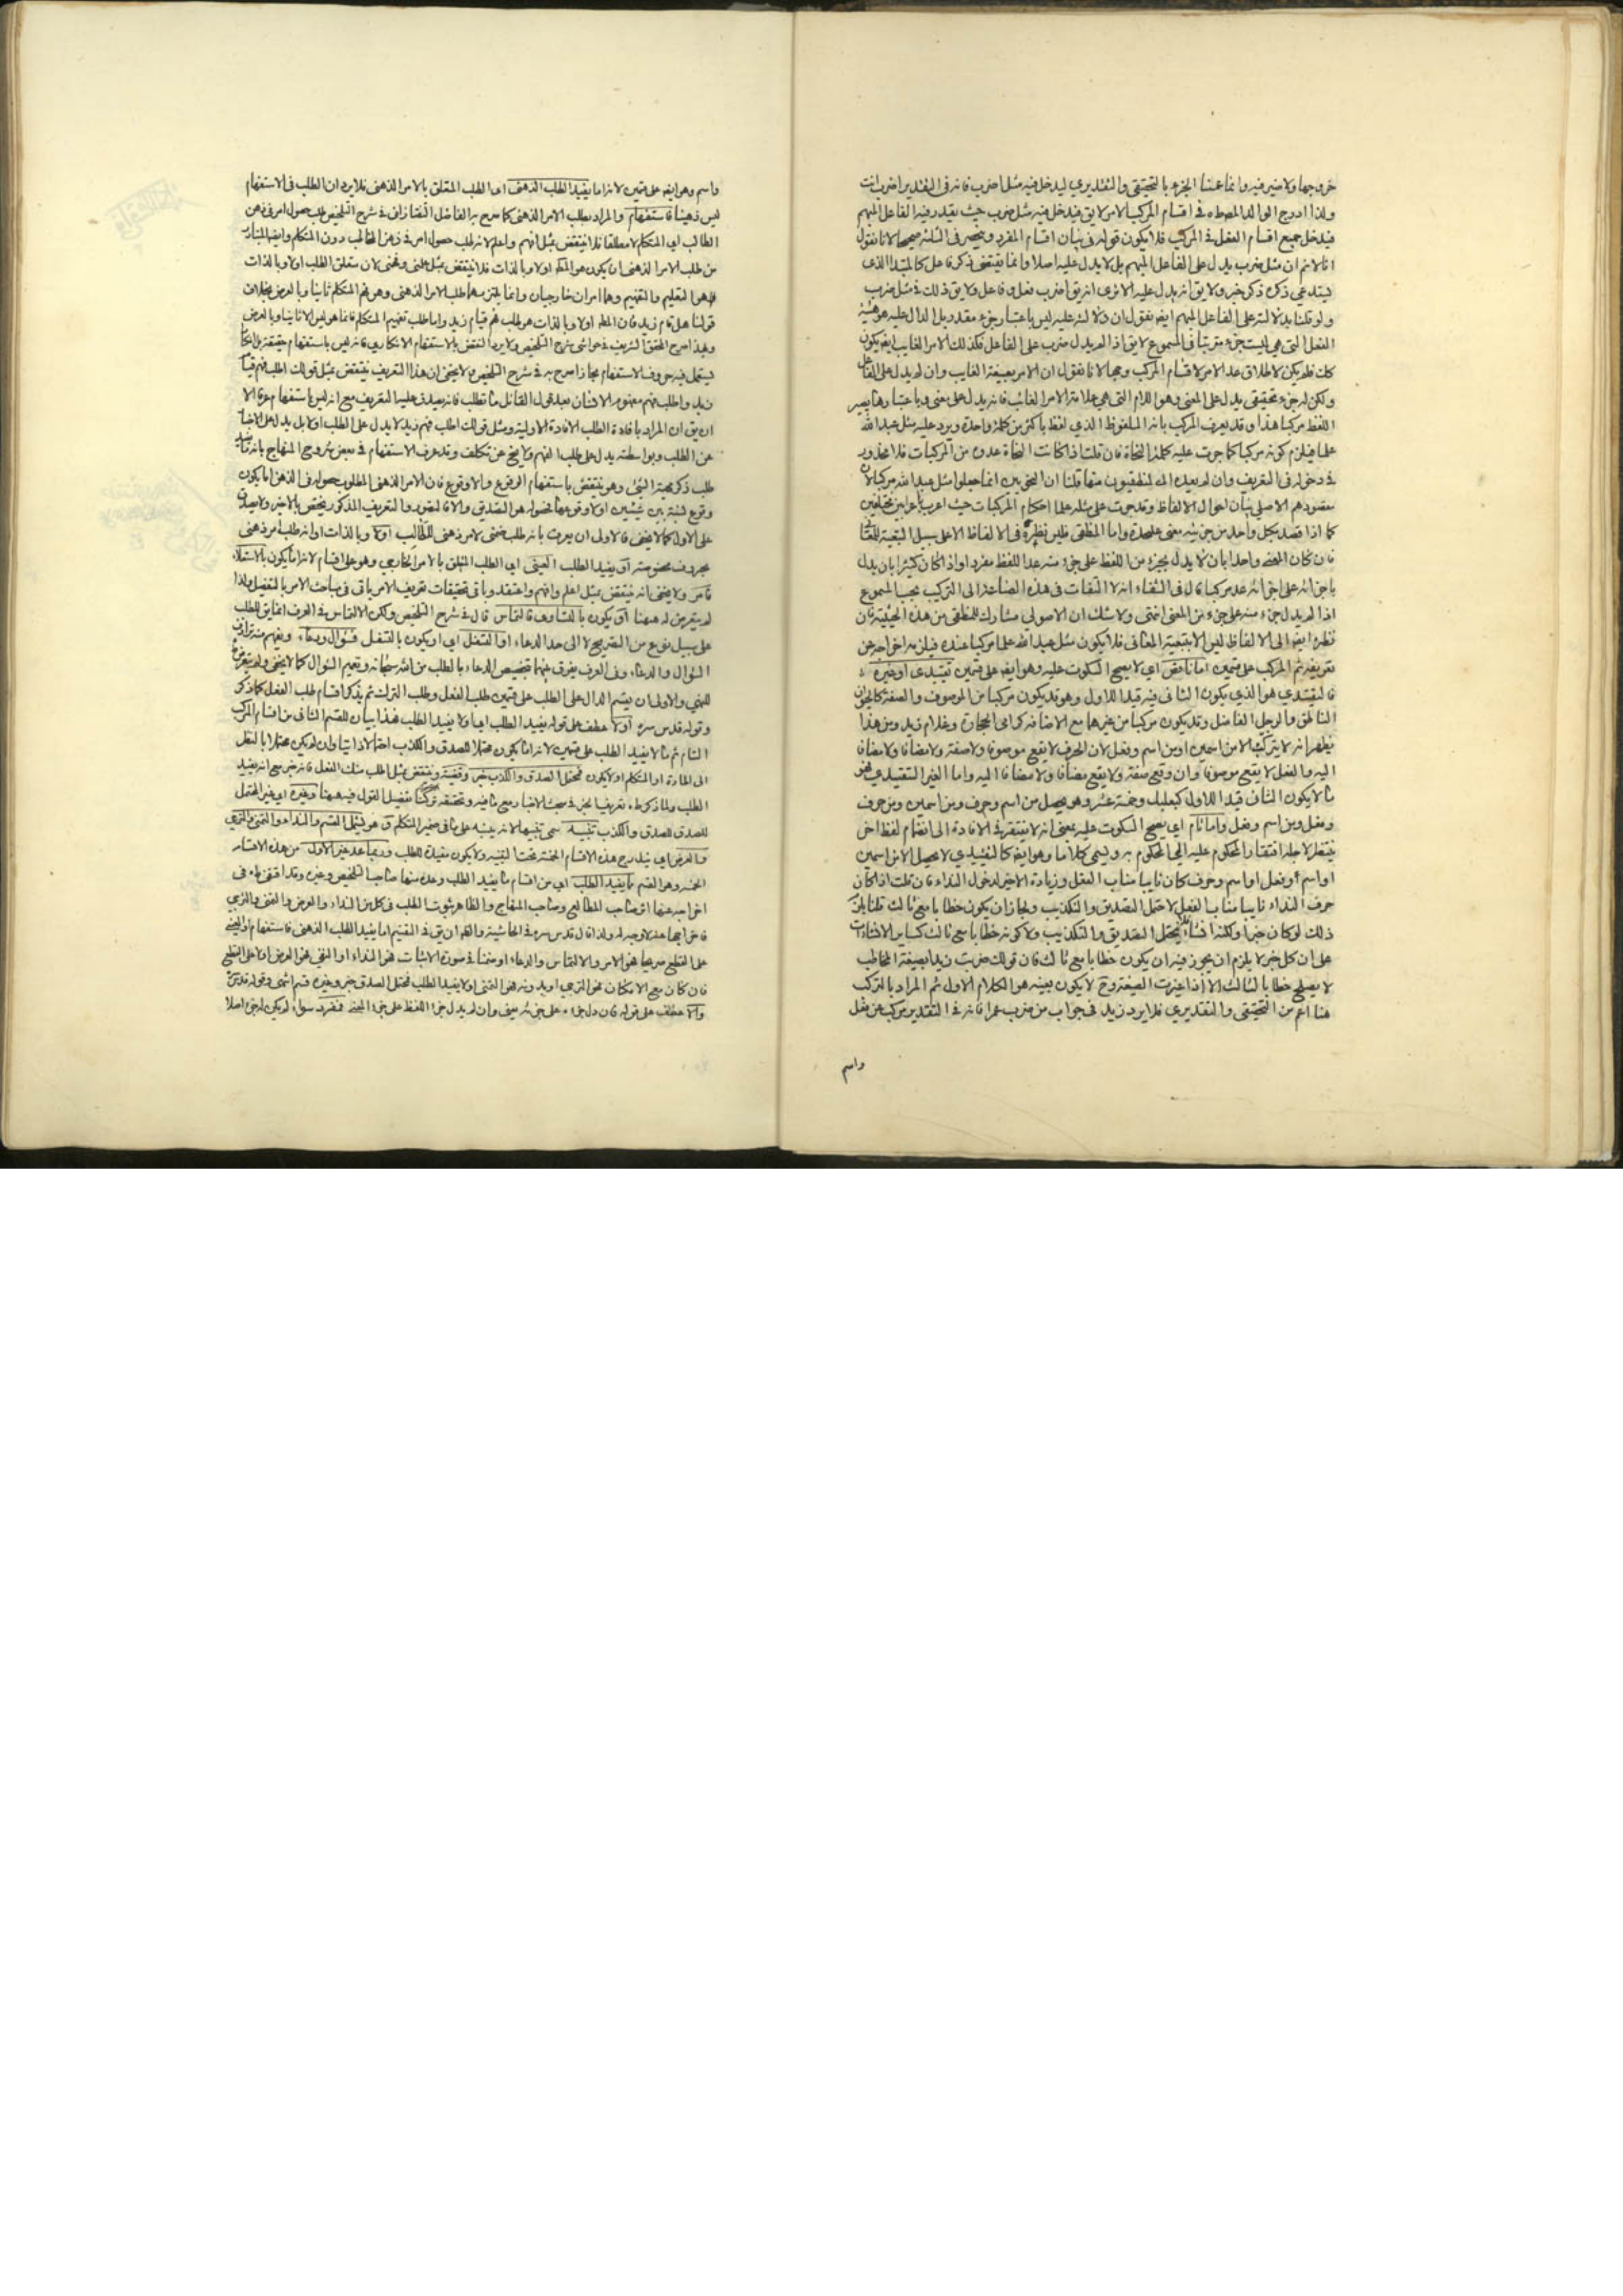 خروجها ولا ضير فيه وانما عممنا الجزء بالتحقيقى والتقديري ليدخل فيه مثل اضرب فانه فى التقدير اضرب انت
ولذا ادرج الوالد المص طه فى اقسام المركب الامر لا يق فيدخل فيه مثل ضرب حيث يقدر فيه الفاعل المبهم
فيدخل جميع اقسام الفعل فى المركب فلا يكون قوله فى بيان اقسام المفرد وينحصر فى الثلثة صحيحا لانا نقول
انا لا نم ان مثل ضرب يدل على الفاعل المبهم بل لا يدل عليه اصلا وانما يقتضى ذكر فاعل كالمبتدا الذى
يستدعي ذكره ذكر خبر ولا يق انه يدل عليه الا ترى انه يق اضرب فعل وفاعل ولا يق ذلك فى مثل ضرب
ولو قلنا بدلالته على الفاعل المبهم ايض نقول ان دلالته عليه ليس باعتبار جزء مقدر بل الدال عليه هو هيئة
الفعل التى هى ليست جزء مترتبا فى المسموع لا يق اذا لم يدل ضرب على الفاعل فكذلك الامر الغايب ايض يكون
كك فلم يكن لاطلاق عد الامر من اقسام المركب وجها لانا نقول ان الامر بصيغة الغايب وان لم يدل على الفاعل
ولكن له جزء تحقيقى يدل على المعنى وهو اللام التى هى علامة الامر الغائب فانه يدل على معنى وباعتبارها يصير
اللفظ مركبا هذا وقد يعرف المركب بانه الملفوظ الذي لفظ باكثر من كلمة واحدة ويرد عليه مثل عبد الله
علما فيلزم كونه مركبا كما جرت عليه كلمة النحاة فان قلت اذا كانت النحاة عدوه من المركبات فلا محذور
فى دخوله فى التعريف وان لم يعده المنطقيون منها قلنا ان النحويين انما جعلوا مثل عبد الله مركبا لان
مقصودهم الاصلى بيان احوال الالفاظ وقد جرت على مثله علما احكام المركبات حيث اعرب باعرابين مختلفين
كما اذا قصد بكل واحد من جزئيه معنى عليحدة واما المنطقى فليس نظره فى الالفاظ الا على سبيل التبعية للمعانى
فان كان المعنى واحدا بان لا يدل بجزء من اللفظ على جزء منه عد اللفظ مفردا واذا كان كثيرا بان يدل
باجزائه على اجزائه عد مركبا قال فى الشفاء انه لا التفات فى هذه الصناعة الى التركيب بحسب المسموع
اذا لم يدل جزء منه على جزء من المعنى انتهى ولا شك ان الاصولي مشارك للمنطقى من هذه الحيثية فان
نظره ايض الى الالفاظ ليس الا بتبعية المعانى فلا يكون مثل عبد الله علما مركبا عنده فيلزمه اخراجه عن
تعريفه ثم المركب على قسمين اما ناقص اي لا يصح السكوت عليه وهو ايض على قسمين تقييدى او غيره
فالتقييدي هو الذي يكون الثانى فيه قيدا للاول وهو قد يكون مركبا من الموصوف والصفة كالحيوان
الناطق والرجل الفاضل وقد يكون مركبا من غيرهما مع الاضافة كرامى الحجارة وغلام زيد ومن هذا
يظهر انه لا يتركب الا من اسمين او من اسم وفعل لان الحرف لا يقع موصوفا ولا صفة ولا مضافا ولا مضافا
اليه والفعل لا يقع موصوفا وان وقع صفة ولا يقع مضافا ولا مضافا اليه واما الغير التقييدي فهو
ما لا يكون الثانى قيدا للاول كبعلبك وخمسة عشر وهو يحصل من اسم وحرف ومن اسمين ومن حرف
وفعل ومن اسم وفعل واما تام اي يصح السكوت عليه بمعنى انه لا يفتقر فى الافادة الى انضمام لفظ اخر
ينتظر لاجله افتقار المحكوم عليه الى المحكوم به ويسمى كلاما وهو ايض كالتقييدي لا يحصل الا من اسمين
او اسم وفعل او اسم وحرف كان نايبا مناب الفعل وزيادة الاخير لدخول النداء فان قلت اذا كان
حرف النداء نايبا مناب الفعل لاحتمل التصديق والتكذيب ولجاز ان يكون خطابا مع ثالث قلنا يلزم
ذلك لو كان خبرا ولكنه انشاء فلا يحتمل التصديق والتكذيب ولا كونه خطابا مع ثالث كساير الانشاءات
على ان كل خبر لا يلزم ان يجوز فيه ان يكون خطابا مع ثالث فان قولك ضربت زيدا بصيغة المخاطب
لا يصلح خطابا لثالث الا اذا غيرت الصيغة وح لا يكون بعينه هو الكلام الاول ثم المراد بالتركب
هنا اعم من التحقيقى والتقديري فلا يرد زيد فى جواب من ضرب عمرا فانه فى التقدير مركب من فعل
واسم
واسم وهو ايض على قسمين لانه اما يفيد الطلب الذهنى اى الطلب المتعلق بالامر الذهنى فلا يرد ان الطلب فى الاستفهام
ليس ذهنيا فاستفهام والمراد بطلب الامر الذهنى كما صرح به الفاضل التفتازانى فى شرح التلخيص طلب حصول امر فى ذهن
الطالب اي المتكلم لا مطلقا فلا ينتقض بمثل افهم واعلم لانه طلب حصول امر فى ذهن المخاطب دون المتكلم وايضا المتبادر
من طلب الامر الذهنى ان يكون هو المط اولا وبالذات فلا ينتقض بمثل علمنى وفهمنى لان متعلق الطلب اولا وبالذات
فيهما هو التعليم والتفهيم وهما امران خارجيان وانما يلتزمهما طلب الامر الذهنى وهو فهم المتكلم ثانيا وبالعرض بخلاف
قولنا هل قام زيد فان المط اولا وبالذات هو طلب فهم قيام زيد واما طلب تفهيم المتكلم فانما هو ليس الا ثانيا وبالعرض
وبهذا صرح المحقق الشريف فى حواشى شرح التلخيص ولا يرد النقض بالاستفهام الانكاري فانه ليس باستفهام حقيقة بل انما
يستعمل فيه حروف الاستفهام مجازا صرح به فى شرح التلخيص ولا يخفى ان هذا التعريف ينتقض بمثل قولك اطلب فهم قيام
زيد واطلب فهم مفهوم الانسان بعد قول القائل ما تطلب فانه يصدق عليه التعريف مع انه ليس باستفهام عرفا الا
ان يق ان المراد بافادة الطلب الافادة الاولية ومثل قولك اطلب فهم زيد لا يدل على الطلب اولا بل يدل على الاخبار
عن الطلب وبواسطته يدل على طلب الفهم ولا يخ عن تكلف وقد عرف الاستفهام فى بعض شروح المنهاج بانه
طلب ذكر مهية الشئ وهو ينتقض باستفهام الوقوع واللاوقوع فان الامر الذهنى المطلوب حصوله فى الذهن اما يكون
وقوع نسبة بين شيئين او لا وقوعها فحصوله هو التصديق والا فالتصور والتعريف المذكور يختص بالاخير ولا يصدق
على الاول كما لا يخفى فالاولى ان يعرف بانه طلب ضمنى لامر ذهنى للطالب اولا وبالذات او انه طلب امر ذهنى
بحروف مخصوصة او يفيد الطلب العينى اي الطلب المتعلق بالامر الخارجي وهو على اقسام لانه اما يكون بالاستعلاء
فامر ولا يخفى انه ينتقض بمثل اعلم وافهم واعتقد وباقى تحقيقات تعريف الامر ياتى فى مباحث الامر بالتفصيل ولذا
لم يتعرض له ههنا او يكون بالتساوى فالتماس قال فى شرح التلخيص ولكن الالتماس فى العرف انما يق للطلب
على سبيل نوع من التضرع لا الى حد الدعاء او التسفل اي او يكون بالتسفل فسؤال ودعاء ويفهم منه ترادف
السؤال والدعاء وفى العرف يفرق بينهما بتخصيص الدعاء بالطلب من الله سبحانه وتعميم السؤال كما لا يخفى ولم يتعرض
للنهي والاولى ان يقسم الدال على الطلب على قسمين طلب الفعل وطلب الترك ثم يذكر اقسام طلب الفعل كما ذكر
وقوله قدس سره او لا عطف على قوله يفيد الطلب اي او لا يفيد الطلب فهذا بيان للقسم الثانى من اقسام المركب
التام ثم ما لا يفيد الطلب على قسمين لانه اما يكون محتملا للصدق والكذب احتمالا ذاتيا وان لم يكن محتملا بالنظر
الى المادة او المتكلم او لا يكون فمحتمل الصدق والكذب خبر وقضية وينتقض بمثل اطلب منك الفعل فانه خبر مع انه يفيد
الطلب ولما ذكر طه تعريف الخبر فى مبحث الاخبار مع ما فيه وتحقيقه تركنا تفصيل القول فيه ههنا وغيره اي غير المحتمل
للصدق والكذب تنبيه سمى تنبيها لانه ينبه على ما فى ضمير المتكلم وهو ليشمل القسم والنداء والتمنى والترجي
والعرض اي يندرج هذه الاقسام الخمسة تحت التنبيه ولا يكون مفيدة للطلب وربما عد غير الاول من هذه الاقسام
الخمسة وهو القسم مما يفيد الطلب اي من اقسام ما يفيد الطلب وعده منها صاحب التلخيص وغيره وقد اقتفى طه فى
اخراجه عنها اثر صاحب المطالع وصاحب المفتاح والظاهر ثبوت الطلب فى كل من النداء والعرض والتمنى والترجي
فاخراجها عنه لا وجه له ولذا قال قدس سره فى الحاشية والاظهر ان يق فى التقسيم اما يفيد الطلب الذهنى فاستفهام او العينى
على القطع صريحا فهو الامر والالتماس والدعاء او ضمنا فى صورة الاثبات فهو النداء او النفى فهو العرض او لا على القطع
فان كان مع الامكان فهو الترجي او بدونه فهو التمنى او لا يفيد الطلب فمحتمل الصدق خبر وغيره قسم انتهى وقوله قدس سره
والا عطف على قوله فان دل جزءه على جزئه يعنى وان لم يدل جزء اللفظ على جزء المعنى فمفرد سواء لم يكن له جزء اصلا